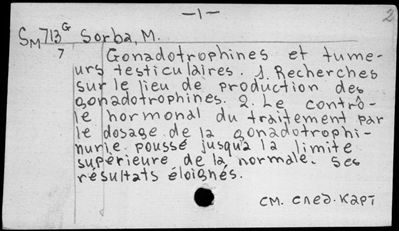 —1—
2
Sм713G Sorba, M.
7
Gonadotrophines et tume-
urs testiculaires. 1. Recherches
sur le lieu de production des
gonadotrophines. 2. Le contrô-
le hormonal du traitement par
le dosage de la gonadotrophi-
nurie poussé jusqu'à la limite
supérieure de la normale. Ses
résultats éloignés.
см. след. карт